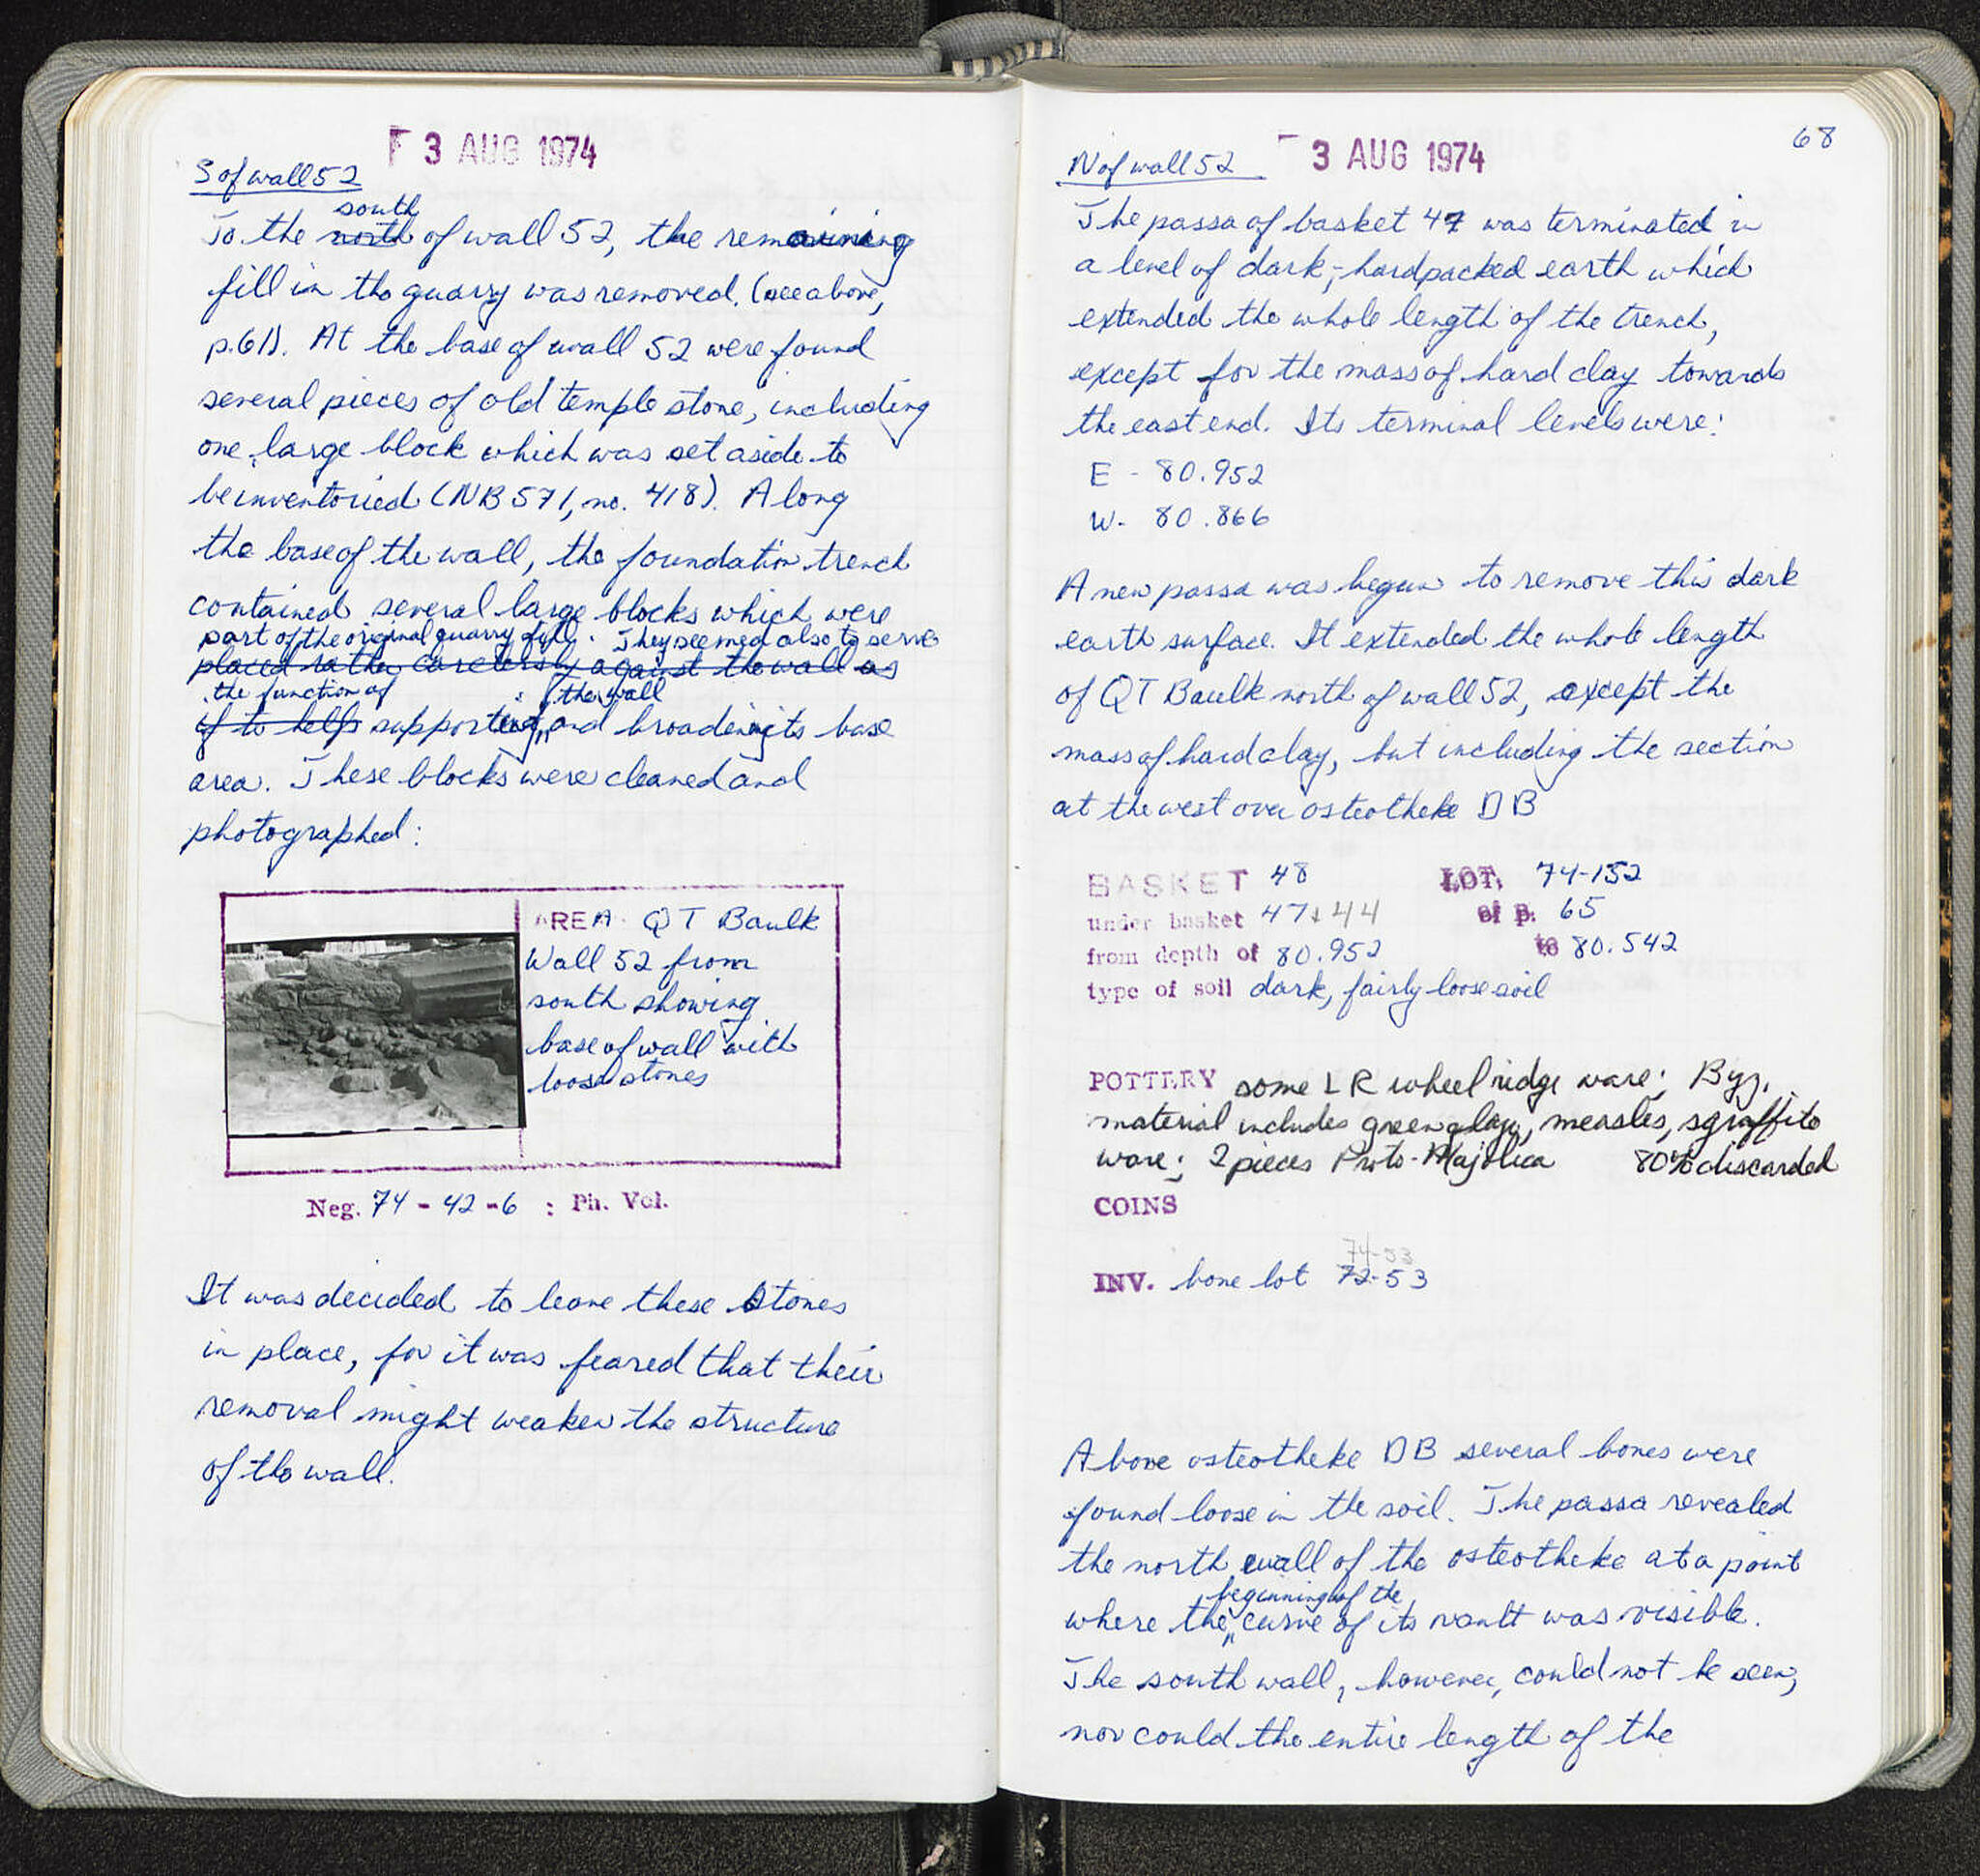 3 AUG 1974
S of wall 52
south
To the north of wall 52, the remaining
fill in the quarry was removed. (see above,
p.61). At the base of wall 52 were found
several pieces of old temple stone, including
one large block which was set aside to
be inventoried (NB 571, no. 418). Along
the base of the wall, the foundation trench
contained several large blocks which were
part of the original quarry fill. They seemed also to serve
placed rather carelessly against the wall as
the function of the wall
if to help supporting and broadening its base
area. These blocks were cleaned and
photographed:
AREA QT Baulk
Wall 52 from
south showing
base of wall with
loose stones
Neg. 74-42-6 : Ph. Vol.
It was decided to leave these stones
in place, for it was feared that their
removal might weaken the structure
of the wall.
68
3 AUG 1974
N of wall 52
The passa of basket 47 was terminated in
a level of dark, hardpacked earth which
extended the whole length of the trench,
except for the mass of hard clay towards
the east end. Its terminal levels were:
E - 80.952
W - 80.866
A new passa was begun to remove this dark
earth surface. It extended the whole length
of QT Baulk north of wall 52, except the
mass of hard clay, but including the section
at the west over osteotheke DB
BASKET 48 LOT, 74-152
under basket 47+44 of p. 65
from depth of 80.952 to 80.542
type of soil dark, fairly loose soil
POTTERY some LR wheel ridge ware; Byz.
material includes green glaze, measles, sgraffito
ware; 2 pieces Proto-Majolica 80% discarded
COINS
74-53
INV. bone lot 72-53
Above osteotheke DB several bones were
found loose in the soil. The passa revealed
the north wall of the osteotheke at a point
beginning of the
where the curve of its vault was visible.
The south wall, however, could not be seen,
nor could the entire length of the